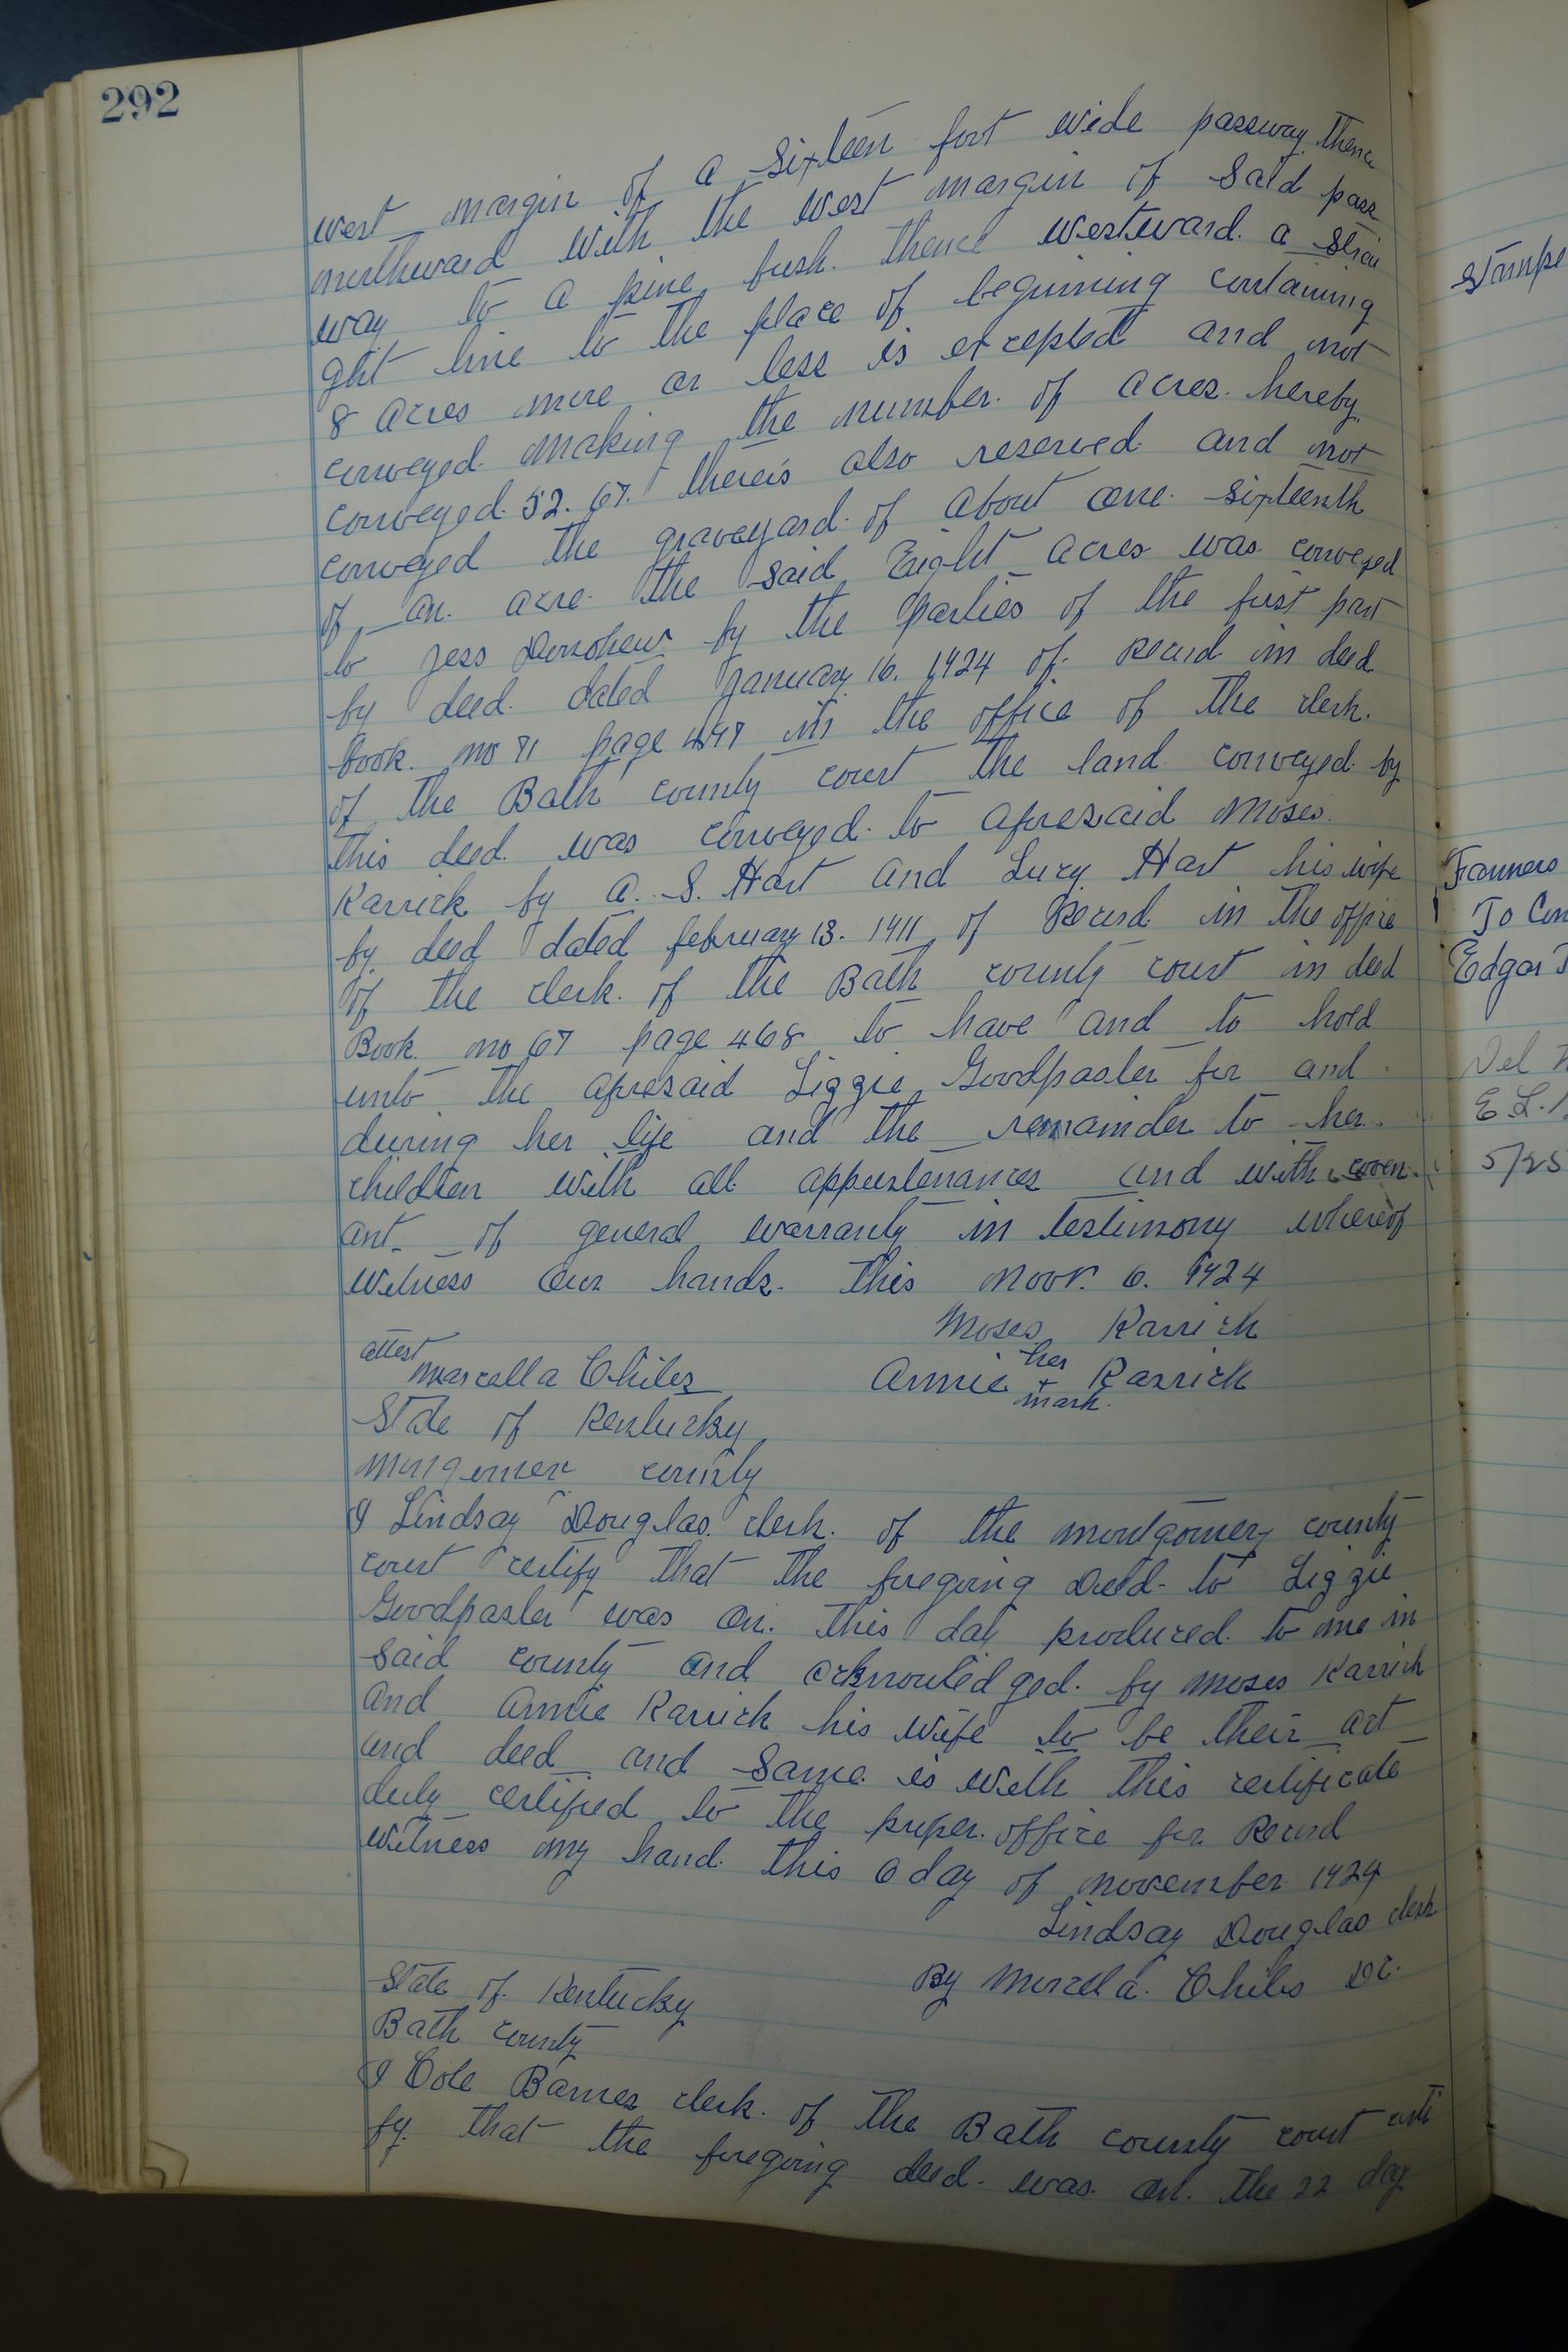 292
west margin of a sixteen foot wide passway thence
northward with the west margin of said pass
way to a pine bush. thence westward. a strai
ght line to the place of beginning containing
8 acres more or less is excepted and not
conveyed. making the number. of acres. hereby
conveyed. 52. 67. there's also reserved. and not
conveyed the graveyard. of about one. sixteenth
of an. acre. the said Eight acres was conveyed
to Jess by the parties of the first part
by deed. dated January 16. 1924 of. Record in deed
book. no 71 page 497 in the office of the clerk.
of the Bath county court the land conveyed. by
this deed. was conveyed. to aforesaid Moses.
Karrick by A. S. Hart and Lucy Hart his wife
by deed dated february 13. 1911 of Record in the office
of the clerk. of the Bath county court in deed
Book no 67 page 468 to have and to hold
unto the aforesaid Lizzie Goodpaster for and
during her life and the remainder to her
children with all appurtenances and with coven
ant of general warranty in testimony whereof
witness our hands. this Nov. 6. 1924
Moses Karrick
attest her
Marcella Chiles Annie + Karrick
mark.
State of Kentucky
county
I Lindsay Douglas. clerk. of the montgomery county
court certify that the foregoing Deed to Lizzie
Goodpaster was on. this day produced. to me in
said county and acknowledged. by Moses Karrick
and Annie Karrick his wife to be their act
and deed and same is with this certificate
duly certified to the proper. office for Record
witness my hand. this 6 day of november 1924
Lindsay Douglas clerk
By Marcella. Chiles DC.
State of Kentucky
Bath county
I Cole Barnes clerk. of the Bath county court certi
fy. that the foregoing deed. was on. the 22 day
Farmers
To Con
Edgar
Del
E L.
5/25